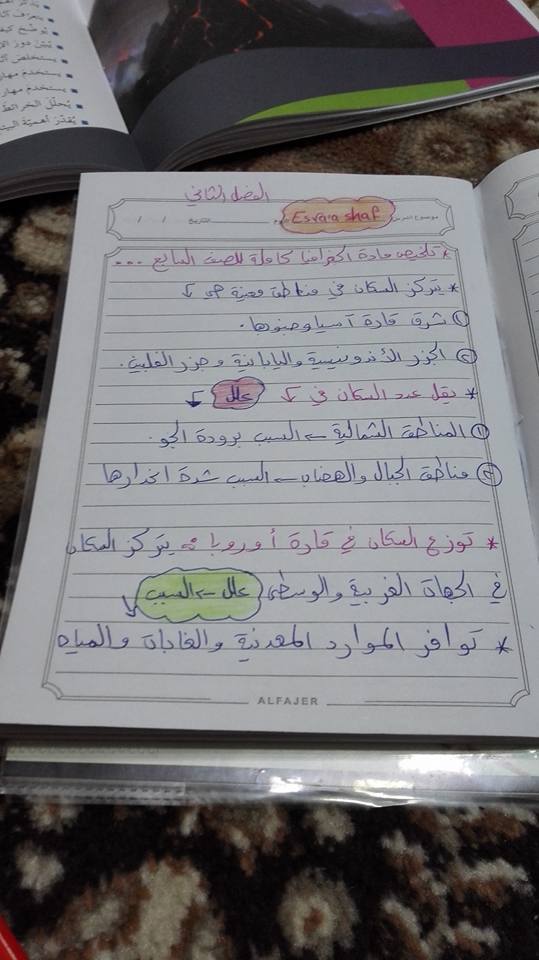 يذكر
يتعرف
توضح كيف
يبين دور الإ
يستخلص
يستخدم مهار
يستخدم مهار
يحلل الخرائط
يقدر أهمية البيئ
الفصل الثاني
موضوع الدرس Esraa shaf اليوم التاريخ / /
* تلخيص مادة الجغرافيا كاملة للصف السابع ...
* يتركز السكان في مناطق معينة هي ↓
① شرق قارة آسيا وجنوبها.
② الجزر الأندونيسية واليابانية وجزر الفلبين.
* يقل عدد السكان في ↓ علل ↓
① المناطق الشمالية ← السبب برودة الجو.
② مناطق الجبال والهضاب ← السبب شدة انحدارها
* توزع السكان في قارة أوروبا :- يتركز السكان
في الجهات الغربية والوسطى علل ← السبب ↓
* توافر الموارد المعدنية والغابات والمياه
ALFAJER